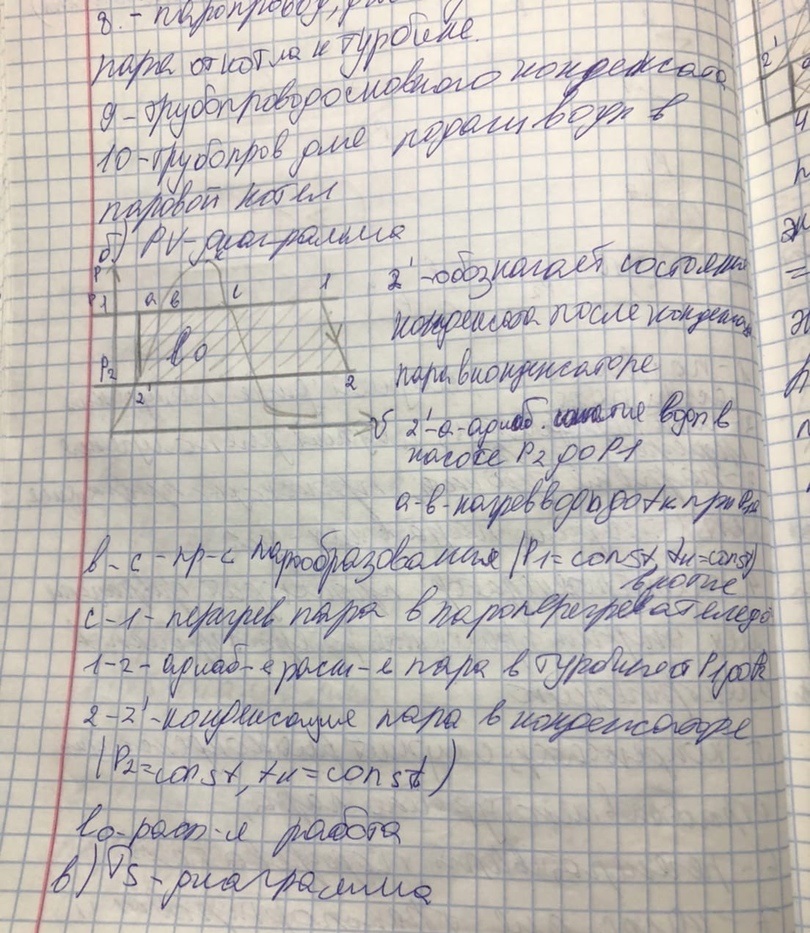 8. - паропровод, для
пара от котла к турбине.
9 - трубопровод основного конденсата
10 - трубопров для подачи воды в
паровой котел
б) PV - диаграмма
P
P1 a в c 1
l0
P2
2' 2
υ
2' - обозначает состояние
конденсата после конденсац
пара в конденсаторе
2'-a - адиаб. сжатие воды в
насосе P2 до P1
a-в - нагрев воды до tн при P1
в - c - пр-с парообразования (P1 = const, tн = const)
в котле
c-1 - перегрев пара в пароперегревателе до
1-2 - адиаб-е расш-е пара в турбине от P1 до P2
2-2' - конденсация пара в конденсаторе
(P2 = const, tн = const)
l0 - расп-я работа
в) TS - диаграмма
2'